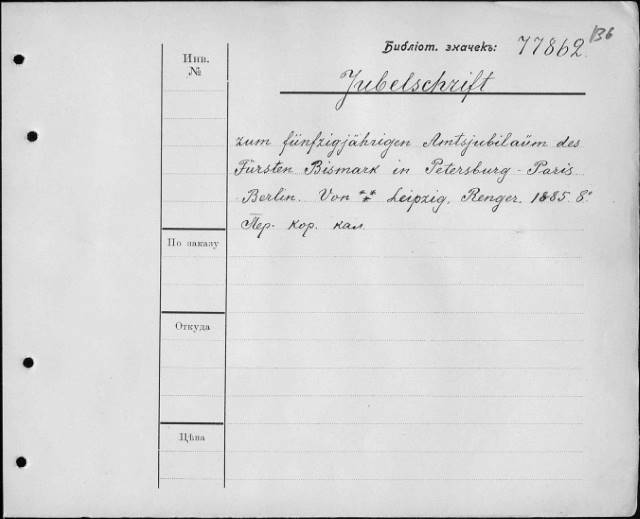 136
Библіот. значекъ: 77862.
Инв.
№
Jubelschrift
zum fünfzigjährigen Amtsjubilaüm des
Fürsten Bismark in Petersburg - Paris
Berlin. Von *** Leipzig, Renger. 1885. 8º
Пер. кор. кал.
По заказу
Откуда
Цѣна